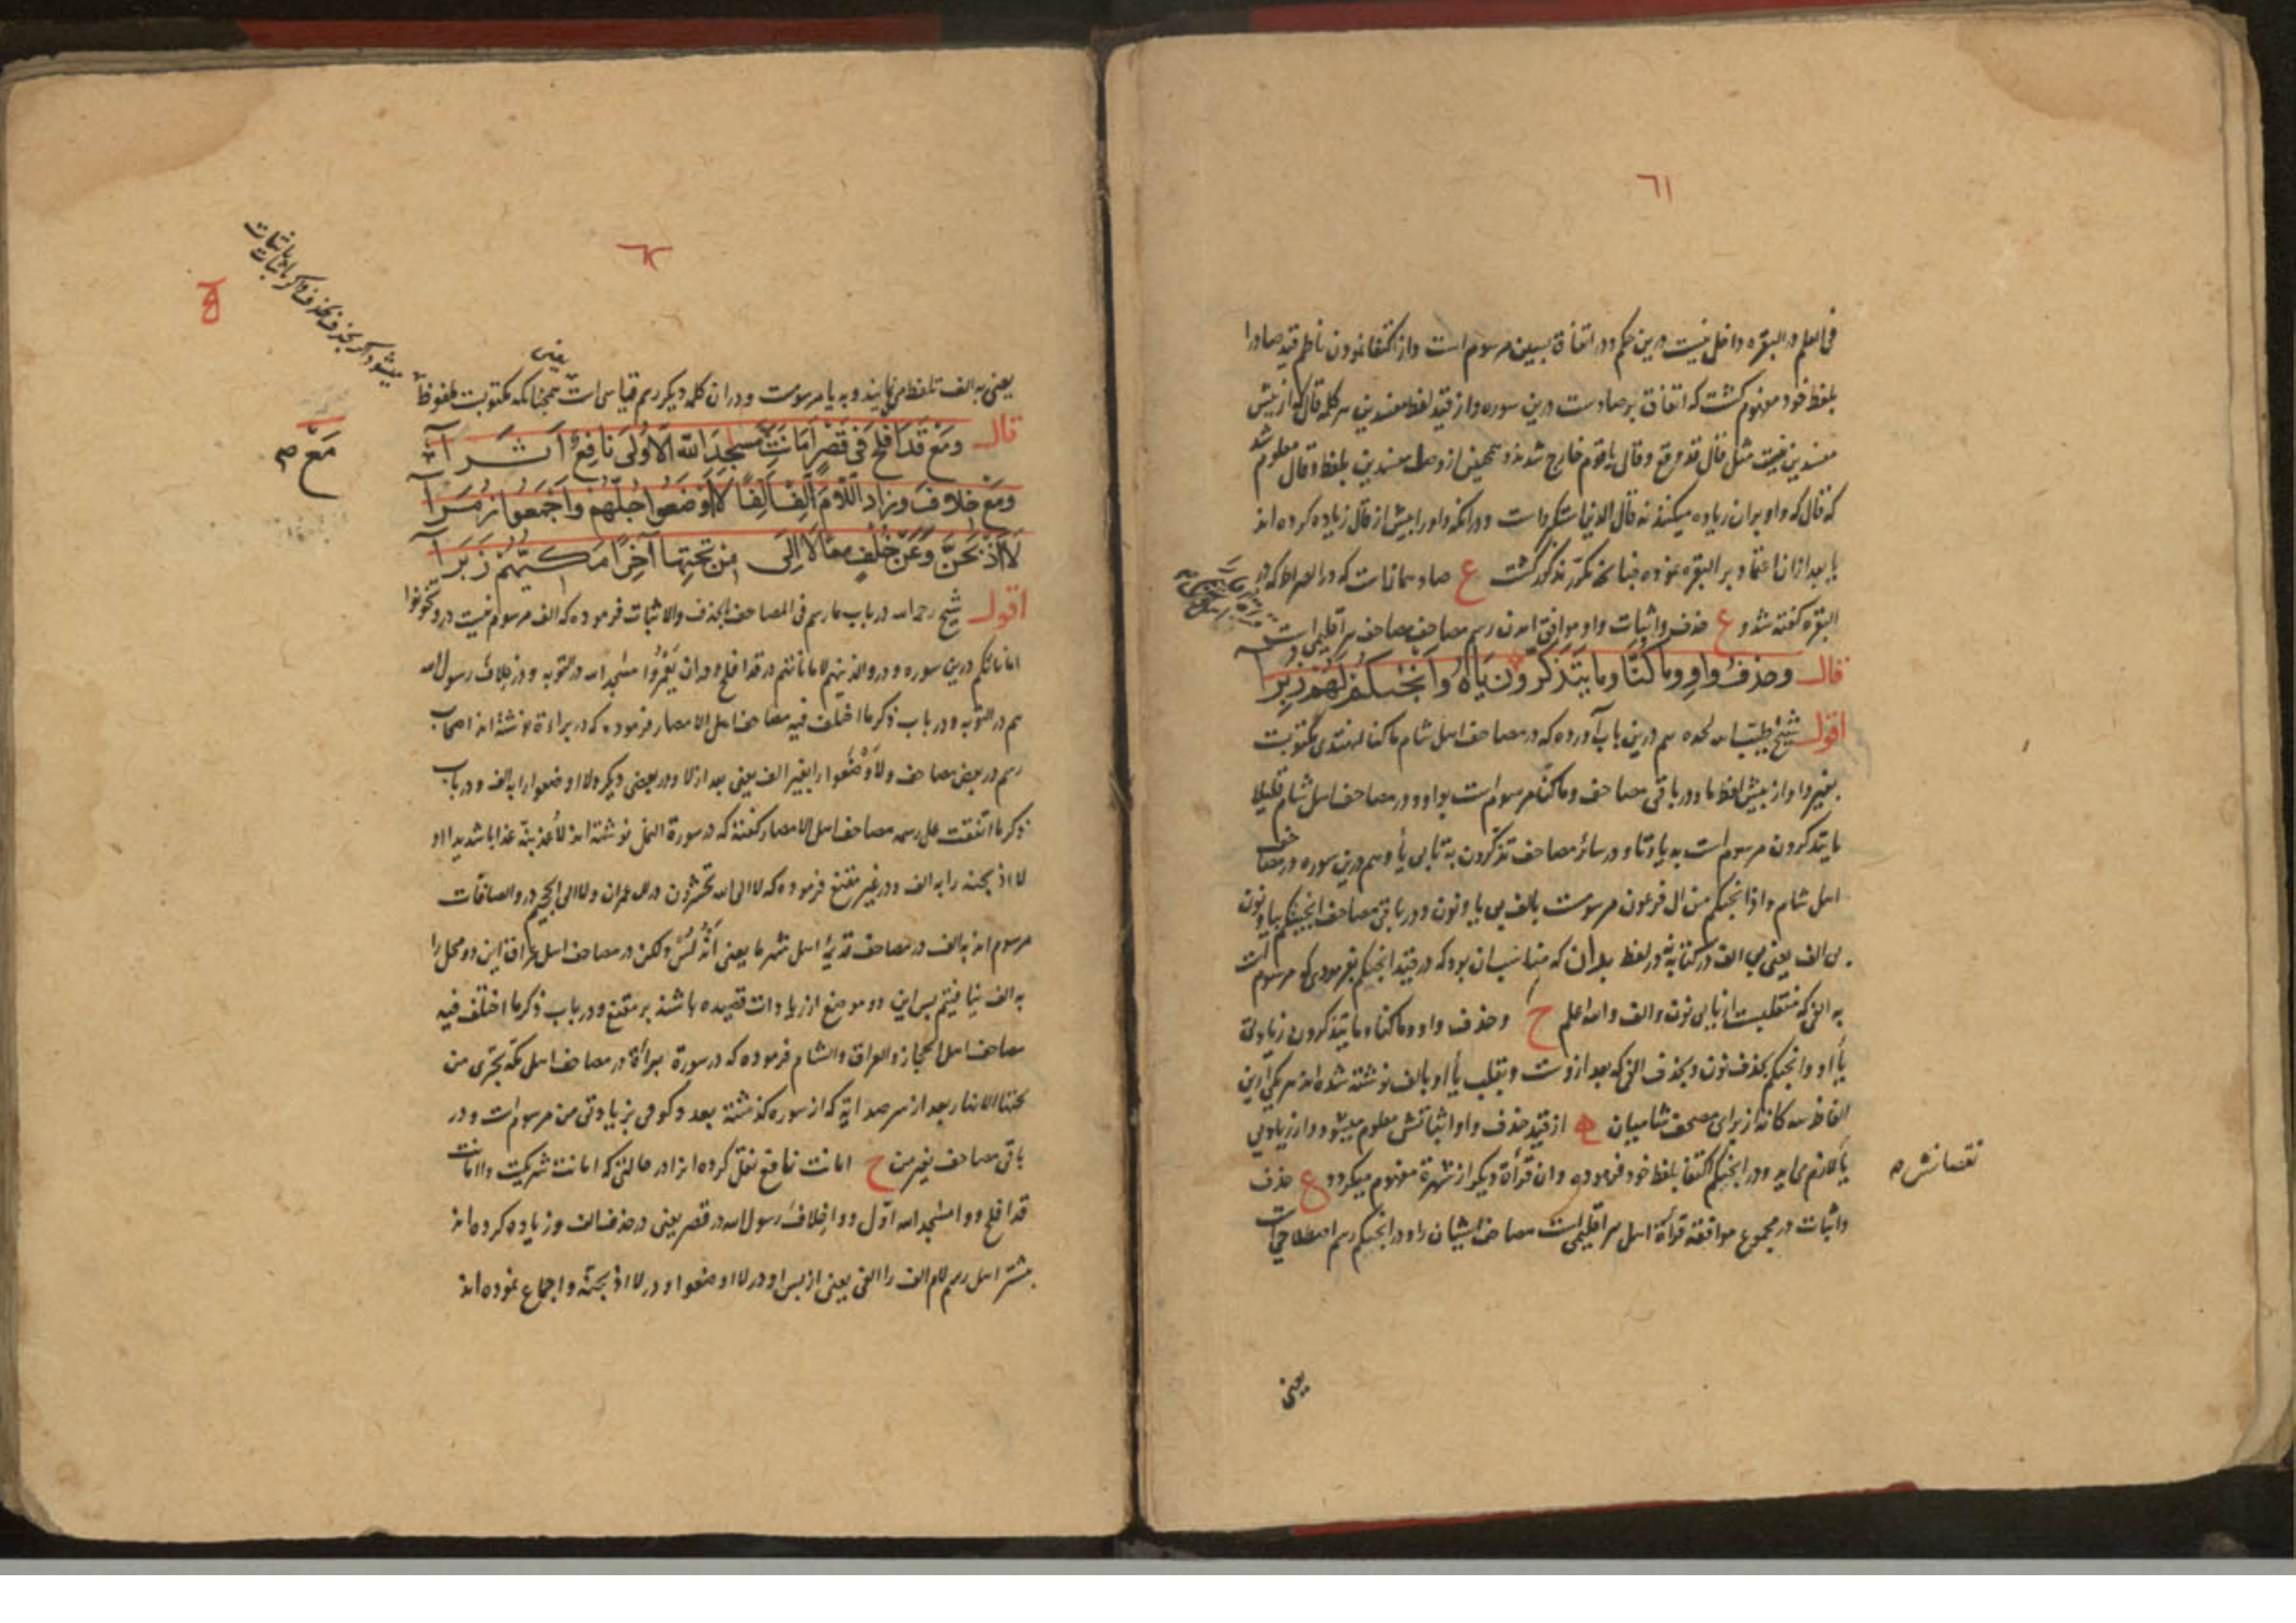 ٦١
فی العلم در البقره داخل نیست درین حکم و در اتفاق بسین مرسوم است و از اکتفا نمودن ناظم قید صاد را
بلفظ خود مفهوم کشت که اتفاق بر صادست درین سوره و از قید لفظ مفسدین هر کلمه قال که از پیش
مفسدین نیست مثل قال و قال یا قوم خارج شدند و همچنین از وصل مفسدین بلفظ و قال معلوم شد
که قال که واو بر ان زیاده میکنند نه قال الذین استکبروا است و در انکه واو را پیش از قال زیاده کرده اند
یا بعد از ان اعتماد بر البقره نموده چنانچه مکرر مذکور کشت ع صاد همانات که در الصراط که در
البقره کفته شد و ع حذف و اثبات واو موافق امدن رسم مصاحف مصاحف هر اقلیمی است
قال وحذف واو وما كنا وما يتذكرون ياه وانجىكم لهم زبرا
اقول شیخ طیب الله لحده هم درین باب آورده که در مصاحف اهل شام ما کنا لنهتدی مکتوبت
بغیر واو از پیش لفظ ما و در باقی مصاحف وما کنا مرسوم است بواو و در مصاحف اهل شام قلیلا
ما یتذکرون مرسوم است به یا و تا و در سائر مصاحف تذکرون به تا بی یا و هم درین سوره در مصاحف
اهل شام و اذ انجیکم من ال فرعون مرسومت بالف بی یا و نون و در باقی مصاحف انجینکم بیا و نون
بی الف یعنی بی الف در کتابة نه در لفظ بدان که مناسب ان بود که در قید انجیکم بفرمودی که مرسوم است
به الفی که منقلبست از یا بی نون و الف و الله اعلم ح و حذف واو وما کنا وما یتذکرون زیادتی
یا او و انجیکم بحذف نون و بحذف الفی که بعد از وست و بقلب یا او بالف نوشته شده اند هر یکی ازین
الفاظ سه کانه از برای مصحف شامیان از قید حذف واو اثباتش معلوم میشود و از زیادتی
یا لازم می اید و در انجیکم اکتفا بلفظ خود فرموده و ان قرأة دیکر از شهرة مفهوم میکردد ع حذف
نقصانش صه
و اثبات در مجموع موافقة قرأة اهل هر اقلیمی است مصاحف ایشان را و در انجیکم رسم اصطلاحی است
یعنی
٦٢
میشود اکر بحذف بحذف و اکر باثبات باثبات
یعنی
یعنی به الف تلفظ می نمایند و به یا مرسومت و در ان کلمه دیکر رسم قیاسی است همچنانکه مکتوبت ملفوظ
قال ومع قد افلح فى قصر امانت مسجد الله الاولى نافع اثرا
مع صه
ومع خلاف وزاد اللام الف الفا لا اوضعوا جلهم واجمعوا زمرا
لا اذبحن وعن خلف معا لا الى من تحتها آخرا مكيهم زبرا
اقول شیخ رحمه الله در باب ما رسم فی المصاحف بالحذف والاثبات فرموده که الف مرسوم نیست در و تخونوا
اماناتکم درین سوره و در و الذین هم لاماناتهم در قد افلح و در ان یعمروا مسجد الله در التوبه و در خلاف رسول الله
هم در التوبه و در باب ذکر ما اختلف فیه مصاحف اهل الامصار فرموده که در براءة نوشته اند اصحاب
رسم در بعض مصاحف ولا وضعوا را بغیر الف یعنی بعد از لا و در بعضی دیکر ولا اوضعوا را به الف و در باب
ذکر ما اتفقت علی رسمه مصاحف اهل الامصار کفته که در سورة النمل نوشته اند لأعذبنه عذابا شدیدا او
لا اذبحنه را به الف و در غیر مقنع فرموده که لا الی الله تحشرون در ال عمران و لا الی الجحیم در و الصافات
مرسوم اند به الف در مصاحف قدیمه اهل شهر ما یعنی اندلس و لکن در مصاحف اهل عراق این دو محل را
به الف نیافتیم پس این دو موضع از زیادات قصیده باشند بر مقنع و در باب ذکر ما اختلف فیه
مصاحف اهل الحجاز والعراق والشام فرموده که در سورة براءة در مصاحف اهل مکه تجری من
تحتها الانهار بعد از سر صد ایة که از سوره کذشته بعد دکوفی بزیادتی من مرسوم است و در
باقی مصاحف بغیر من ح امانت نافع نقل کرده اند در حالتی که امانت شریکت و امانت
قد افلح و و امسجد الله اول و و اخلاف رسول الله در قصر یعنی در حذف الف و زیاده کرده اند
بیشتر اهل رسم لام الف را الفی یعنی از پس او در لا اوضعوا و در لا اذبحنه و اجماع نموده اند